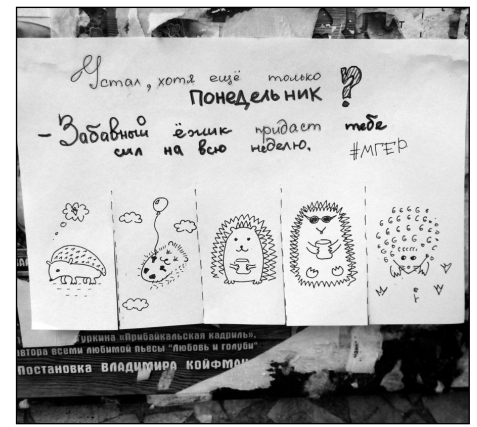 Устал, хотя ещё только
понедельник?
- Забавный ёжик придаст тебе
сил на всю неделю. #МГЕР
туркина «Прибайкальская кадриль»,
автора всеми любимой пьесы "Любовь и голуби"
Постановка ВЛАДИМИРА